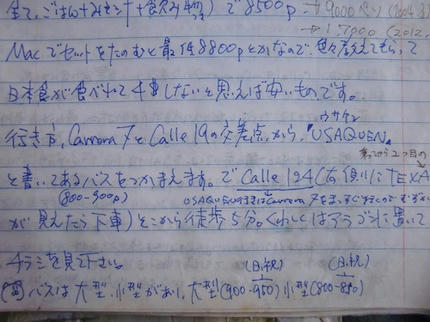 全て、ごはん+みそ汁+食飲み物付)で8500p → 9000ペソ(2004.
→ 17900 (2012.
Macでセットをたのむと最低8800pとかなので、色々考えてもらって
日本食が食べれて4$しないと思えば安いものです。
ウサケン
行き方、Carrera 7とCalle 19の交差点から、"USAQUEN"
と書いてあるバスをつかまえます。でCalle 124(右側にTEXA
(800-900p)
が見えたら下車)そこから徒歩5分。くわしくはアラゴンに置いて
チラシを見て下さい。
(日、祝) (日、祝)
バスは大型、小型があり、大型(900-950) 小型(800-850)